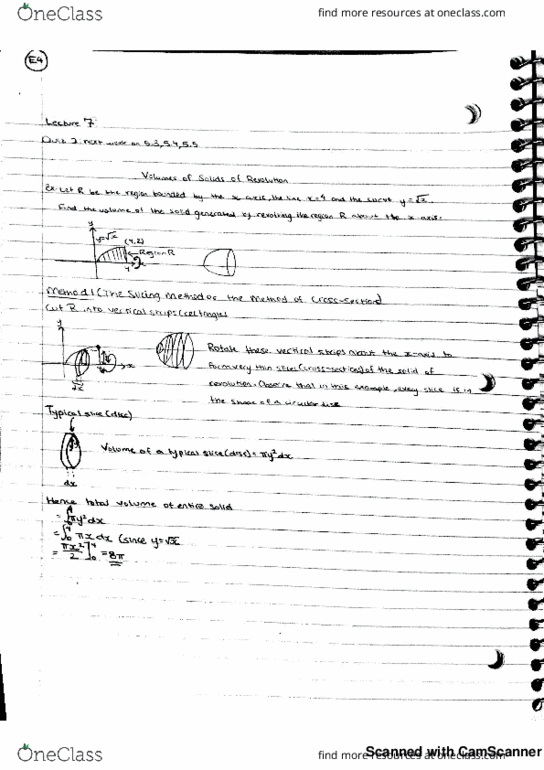 OneClass
find more resources at oneclass.com
E4
Lecture 7
Quiz 2 next week on 5.3, 5.4, 5.5
Volumes of Solids of Revolution
Ex. Let R be the region bounded by the x axis, the line x=4 and the curve y=√x.
Find the volume of the solid generated by revolving the region R about the x axis.
y
y=√x (4,2)
Region R
4 x
Method 1 (The Slicing Method or the Method of Cross-section)
Cut R into vertical strips (rectangles)
y
x
Rotate these vertical strips about the x-axis to
form very thin slices (cross-sections) of the solid of
revolution. Observe that in this example, every slice is in
the shape of a circular disc
Typical slice (disc)
y
Volume of a typical slice (disc) = πy²dx
dx
Hence total volume of entire solid
= ∫πy²dx
= ∫₀⁴ πx dx (since y=√x
= πx²/2 ]₀⁴ = 8π
Scanned with CamScanner
OneClass
find more resources at oneclass.com